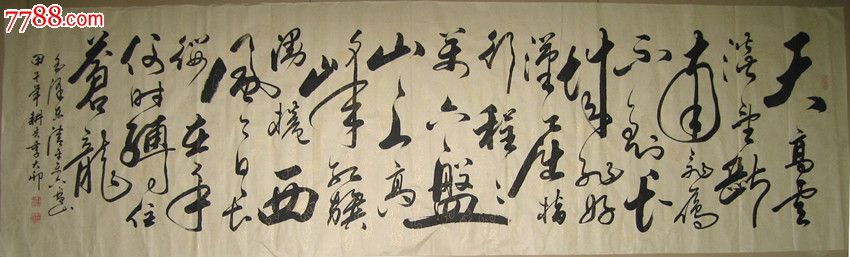 7788.com
天高雲
淡望斷
南飛雁
不到長
城非好
漢屈指
行程二
萬六盤
山上高
峰紅旗
漫捲西
風今日長
纓在手
何時縛住
蒼龍
毛澤東清平樂六盘山
甲午年